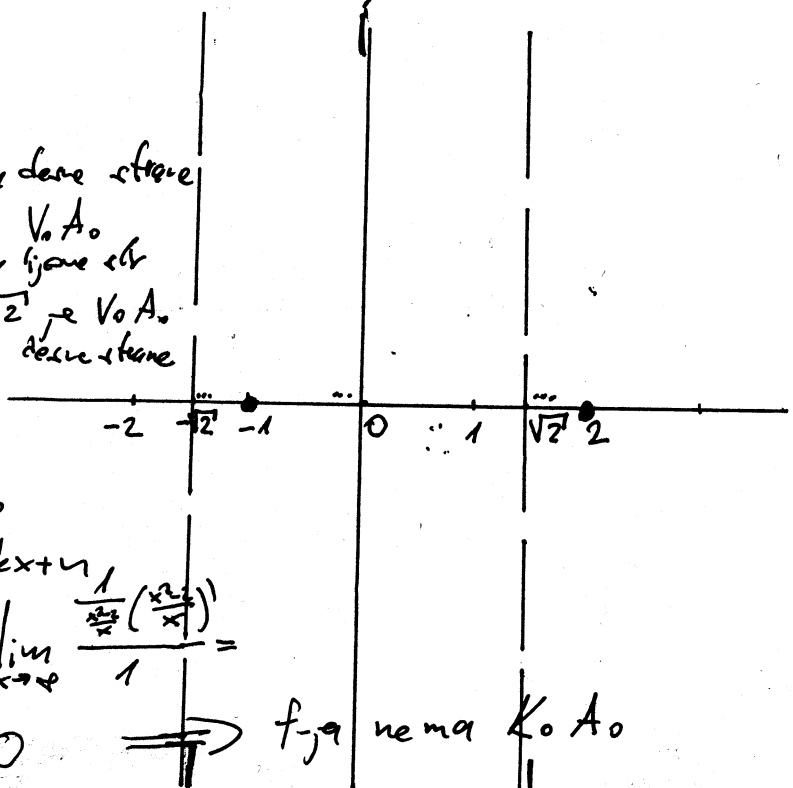 desne strane
V.A.
lijeve str
√2 je V.A.
desne strane
-2 -√2 -1 0 1 √2 2
kx+n
lim x→∞ (1/((x²-2)/x) ((x²-2)/x)')/1 =
0 ⟹ f-ja nema K.A.